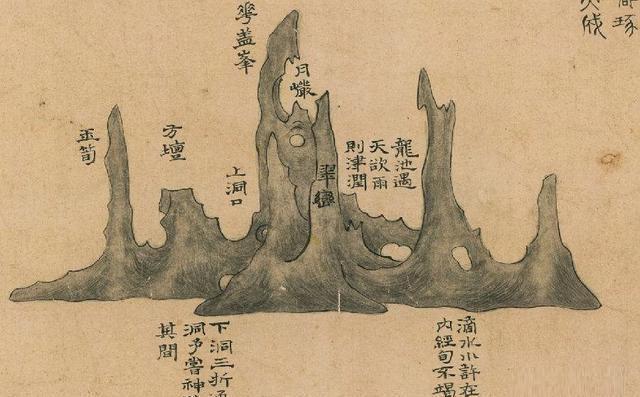 琢
成
龍池遇
天欲雨
則津潤
月巖
翠巒
華蓋峯
上洞口
方壇
玉筍
滴水小許在
內經旬不竭
下洞三折
洞予嘗神
其間